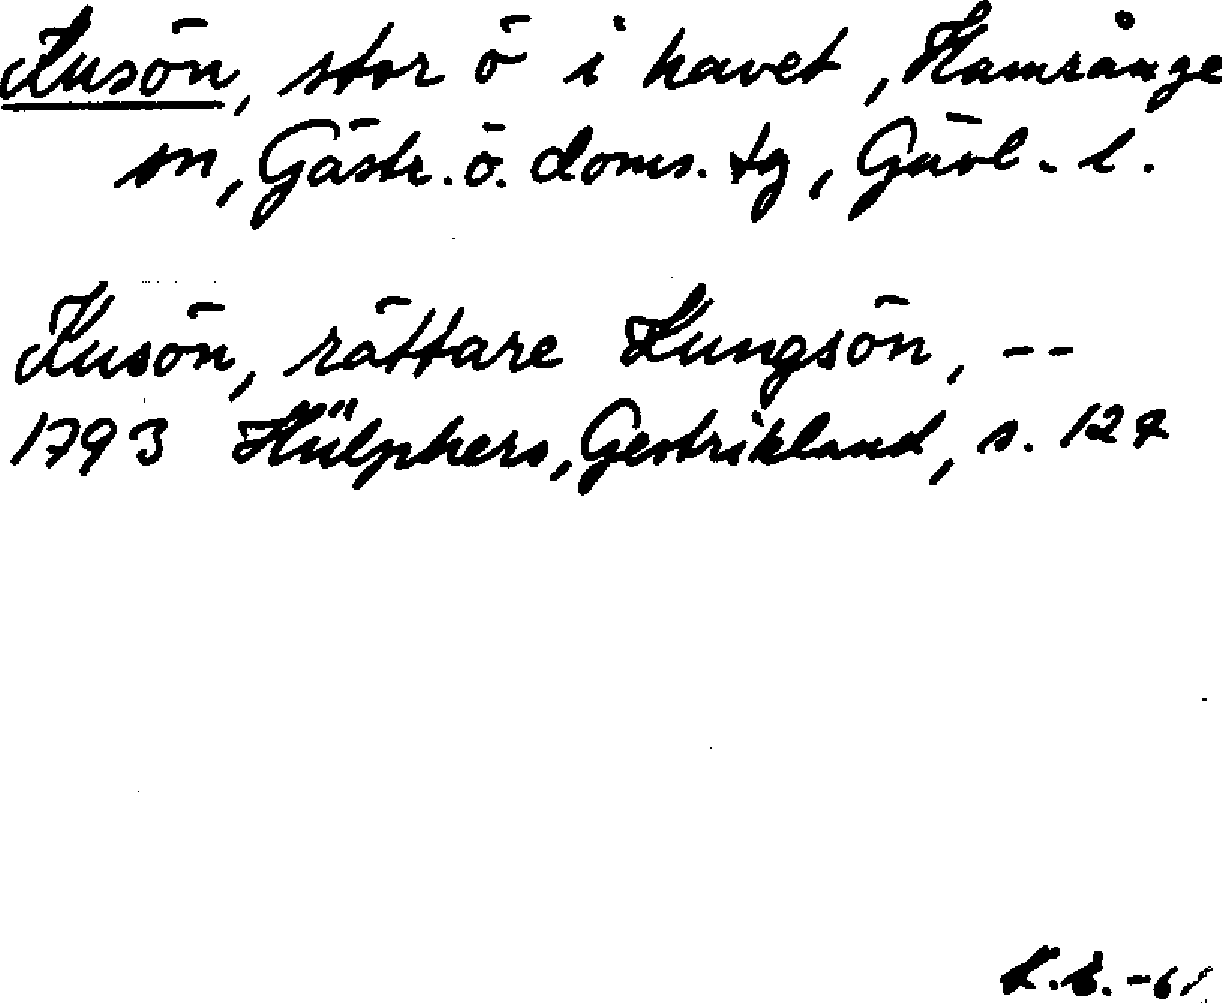 Kusön, stor ö i havet, Hamrånge
sn, Gästr. ö. doms. tg, Gävl. l.
Kusön, rättare Kungsön, --
1793 Hülphers, Gestrikland, s. 127
-61